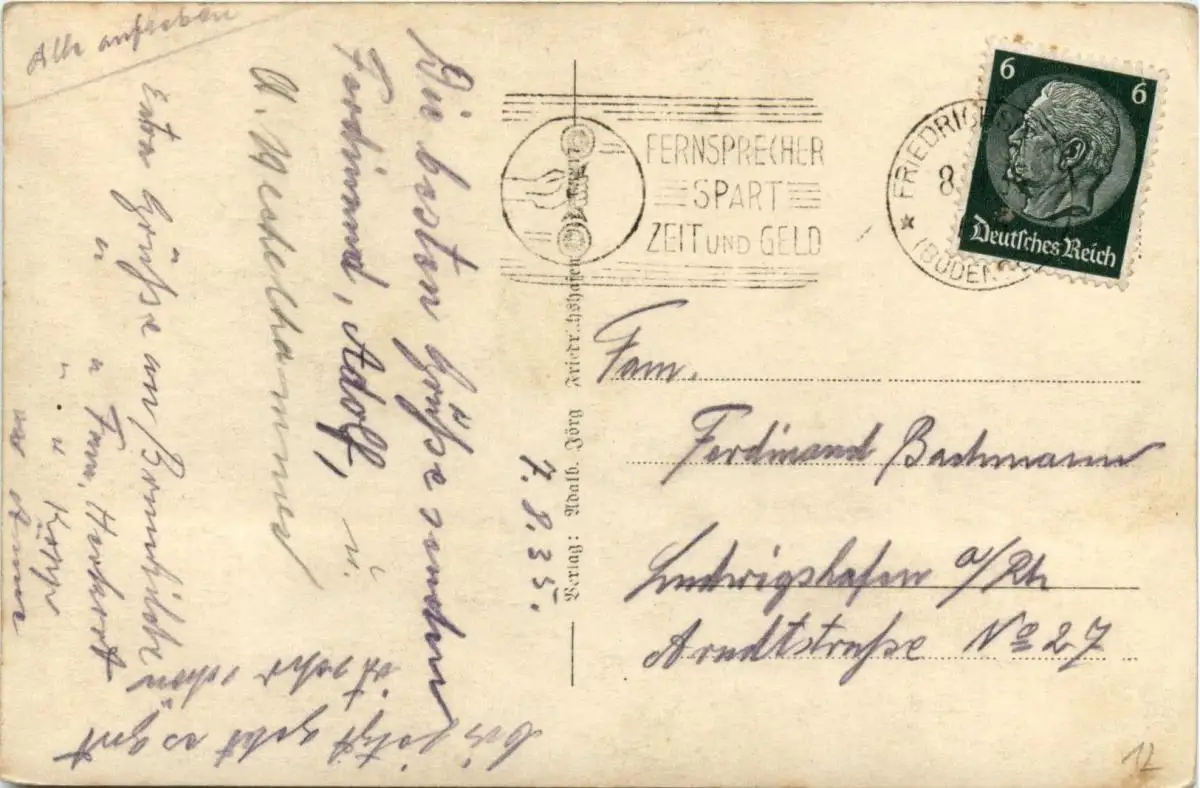 Alle aufheben
Die besten Grüße senden
Ferdinand, Adolf,
u.
Extra Grüße an Brunhilde
" " " Fam. Herbert
" " Köppe
7.8.35.
Bis jetzt geht es gut
ist sehr schön
Verlag: Adalb. Jörg Friedrichshafen
FERNSPRECHER
SPART
ZEIT UND GELD
FRIEDRICHSH
8.
(BODEN
6 6
Deutsches Reich
Fam.
Ferdinand Bachmann
Ludwigshafen a/Rh
Arndtstraße No 27
12